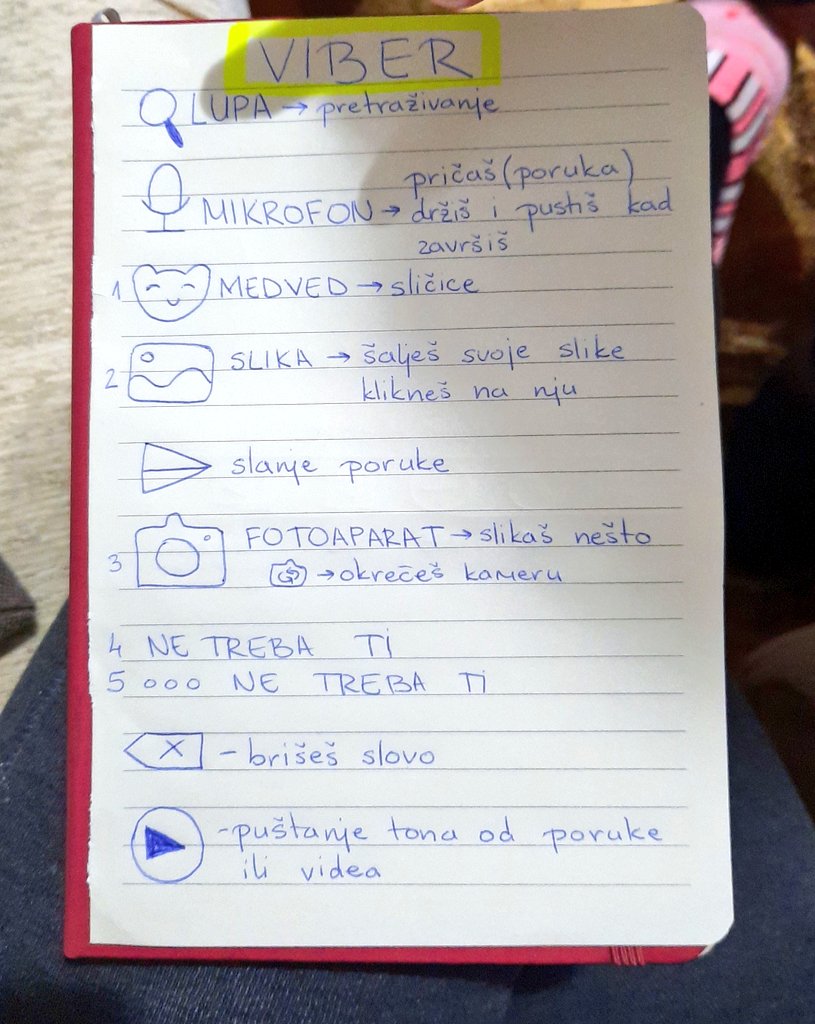 VIBER
LUPA → pretraživanje
pričaš (poruka)
MIKROFON → držiš i pustiš kad
završiš
1 MEDVED → sličice
2 SLIKA → šalješ svoje slike
klikneš na nju
slanje poruke
3 FOTOAPARAT → slikaš nešto
→ okrečeš kameru
4 NE TREBA TI
5 ooo NE TREBA TI
X - brišeš slovo
- puštanje tona od poruke
ili videa